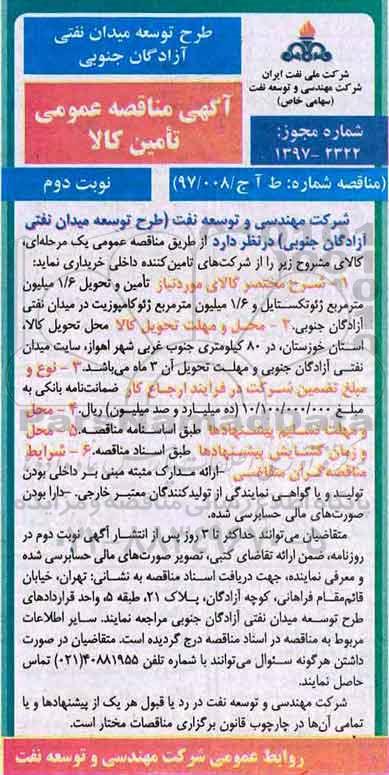 شرکت ملی نفت ایران
شرکت مهندسی و توسعه نفت
(سهامی خاص)
طرح توسعه میدان نفتی
آزادگان جنوبی
آگهی مناقصه عمومی
تأمین کالا
شماره مجوز:
۲۳۲۲-۱۳۹۷
(مناقصه شماره: ط آ ج/۹۷/۰۰۸)
نوبت دوم
شرکت مهندسی و توسعه نفت (طرح توسعه میدان نفتی
آزادگان جنوبی) درنظر دارد از طریق مناقصه عمومی یک مرحله‌ای،
کالای مشروح زیر را از شرکت‌های تامین‌کننده داخلی خریداری نماید:
۱- شرح مختصر کالای موردنیاز تأمین و تحویل ۱/۶ میلیون
مترمربع ژئوتکستایل و ۱/۶ میلیون مترمربع ژئوکامپوزیت در میدان نفتی
آزادگان جنوبی. ۲- محل و مهلت تحویل کالا محل تحویل کالا،
استان خوزستان، در ۸۰ کیلومتری جنوب غربی شهر اهواز، سایت میدان
نفتی آزادگان جنوبی و مهلت تحویل آن ۳ ماه می‌باشد. ۳- نوع و
مبلغ تضمین شرکت در فرایند ارجاع کار ضمانت‌نامه بانکی به
مبلغ ۱۰/۱۰۰/۰۰۰/۰۰۰ (ده میلیارد و صد میلیون) ریال. ۴- محل
و مهلت تسلیم پیشنهادها طبق اساسنامه مناقصه. ۵- محل
و زمان گشایش پیشنهادها طبق اسناد مناقصه. ۶- شرایط
مناقصه‌گران متقاضی -ارائه مدارک مثبته مبنی بر داخلی بودن
تولید و یا گواهی نمایندگی از تولیدکنندگان معتبر خارجی. -دارا بودن
صورت‌های مالی حسابرسی شده.
متقاضیان می‌توانند حداکثر تا ۳ روز پس از انتشار آگهی نوبت دوم در
روزنامه، ضمن ارائه تقاضای کتبی، تصویر صورت‌های مالی حسابرسی شده
و معرفی نماینده، جهت دریافت اسناد مناقصه به نشانی: تهران، خیابان
قائم‌مقام فراهانی، کوچه آزادگان، پلاک ۲۱، طبقه ۵، واحد قراردادهای
طرح توسعه میدان نفتی آزادگان جنوبی مراجعه نمایند. سایر اطلاعات
مربوط به مناقصه در اسناد مناقصه درج گردیده است. متقاضیان در صورت
داشتن هرگونه سئوال می‌توانند با شماره تلفن ۴۰۸۸۱۹۵۵(۰۲۱) تماس
حاصل نمایند.
شرکت مهندسی و توسعه نفت در رد یا قبول هر یک از پیشنهادها و یا
تمامی آن‌ها در چارچوب قانون برگزاری مناقصات مختار است.
روابط عمومی شرکت مهندسی و توسعه نفت